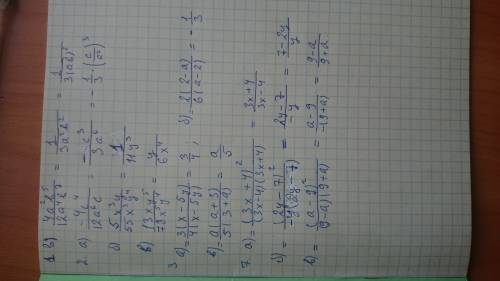 1. б) 4a²b⁵ / 12a⁴b⁷ = 1 / 3a²b² = 1 / 3(ab)²
2. а) -4c⁴ / 12a⁶c = - c³ / 3a⁶ = - 1/3 (c/a²)³
б) 5x²y / 55x²y⁴ = 1 / 11y³
в) 13xy⁵ / 78x⁵y⁴ = y / 6x⁴
3. а) = 3(x-5y) / 4(x-5y) = 3/4 ; б) = 2(2-a) / 6(a-2) = - 1/3
в) = a(a+3) / 5(3+a) = a/5
7. а) = (3x+4)² / (3x-4)(3x+4) = 3x+4 / 3x-4
б) = (2y-7)² / -y(2y-7) = 2y-7 / -y = 7-2y / y
в) = (a-9)² / (9-a)(9+a) = a-9 / -(9+a) = 9-a / 9+a